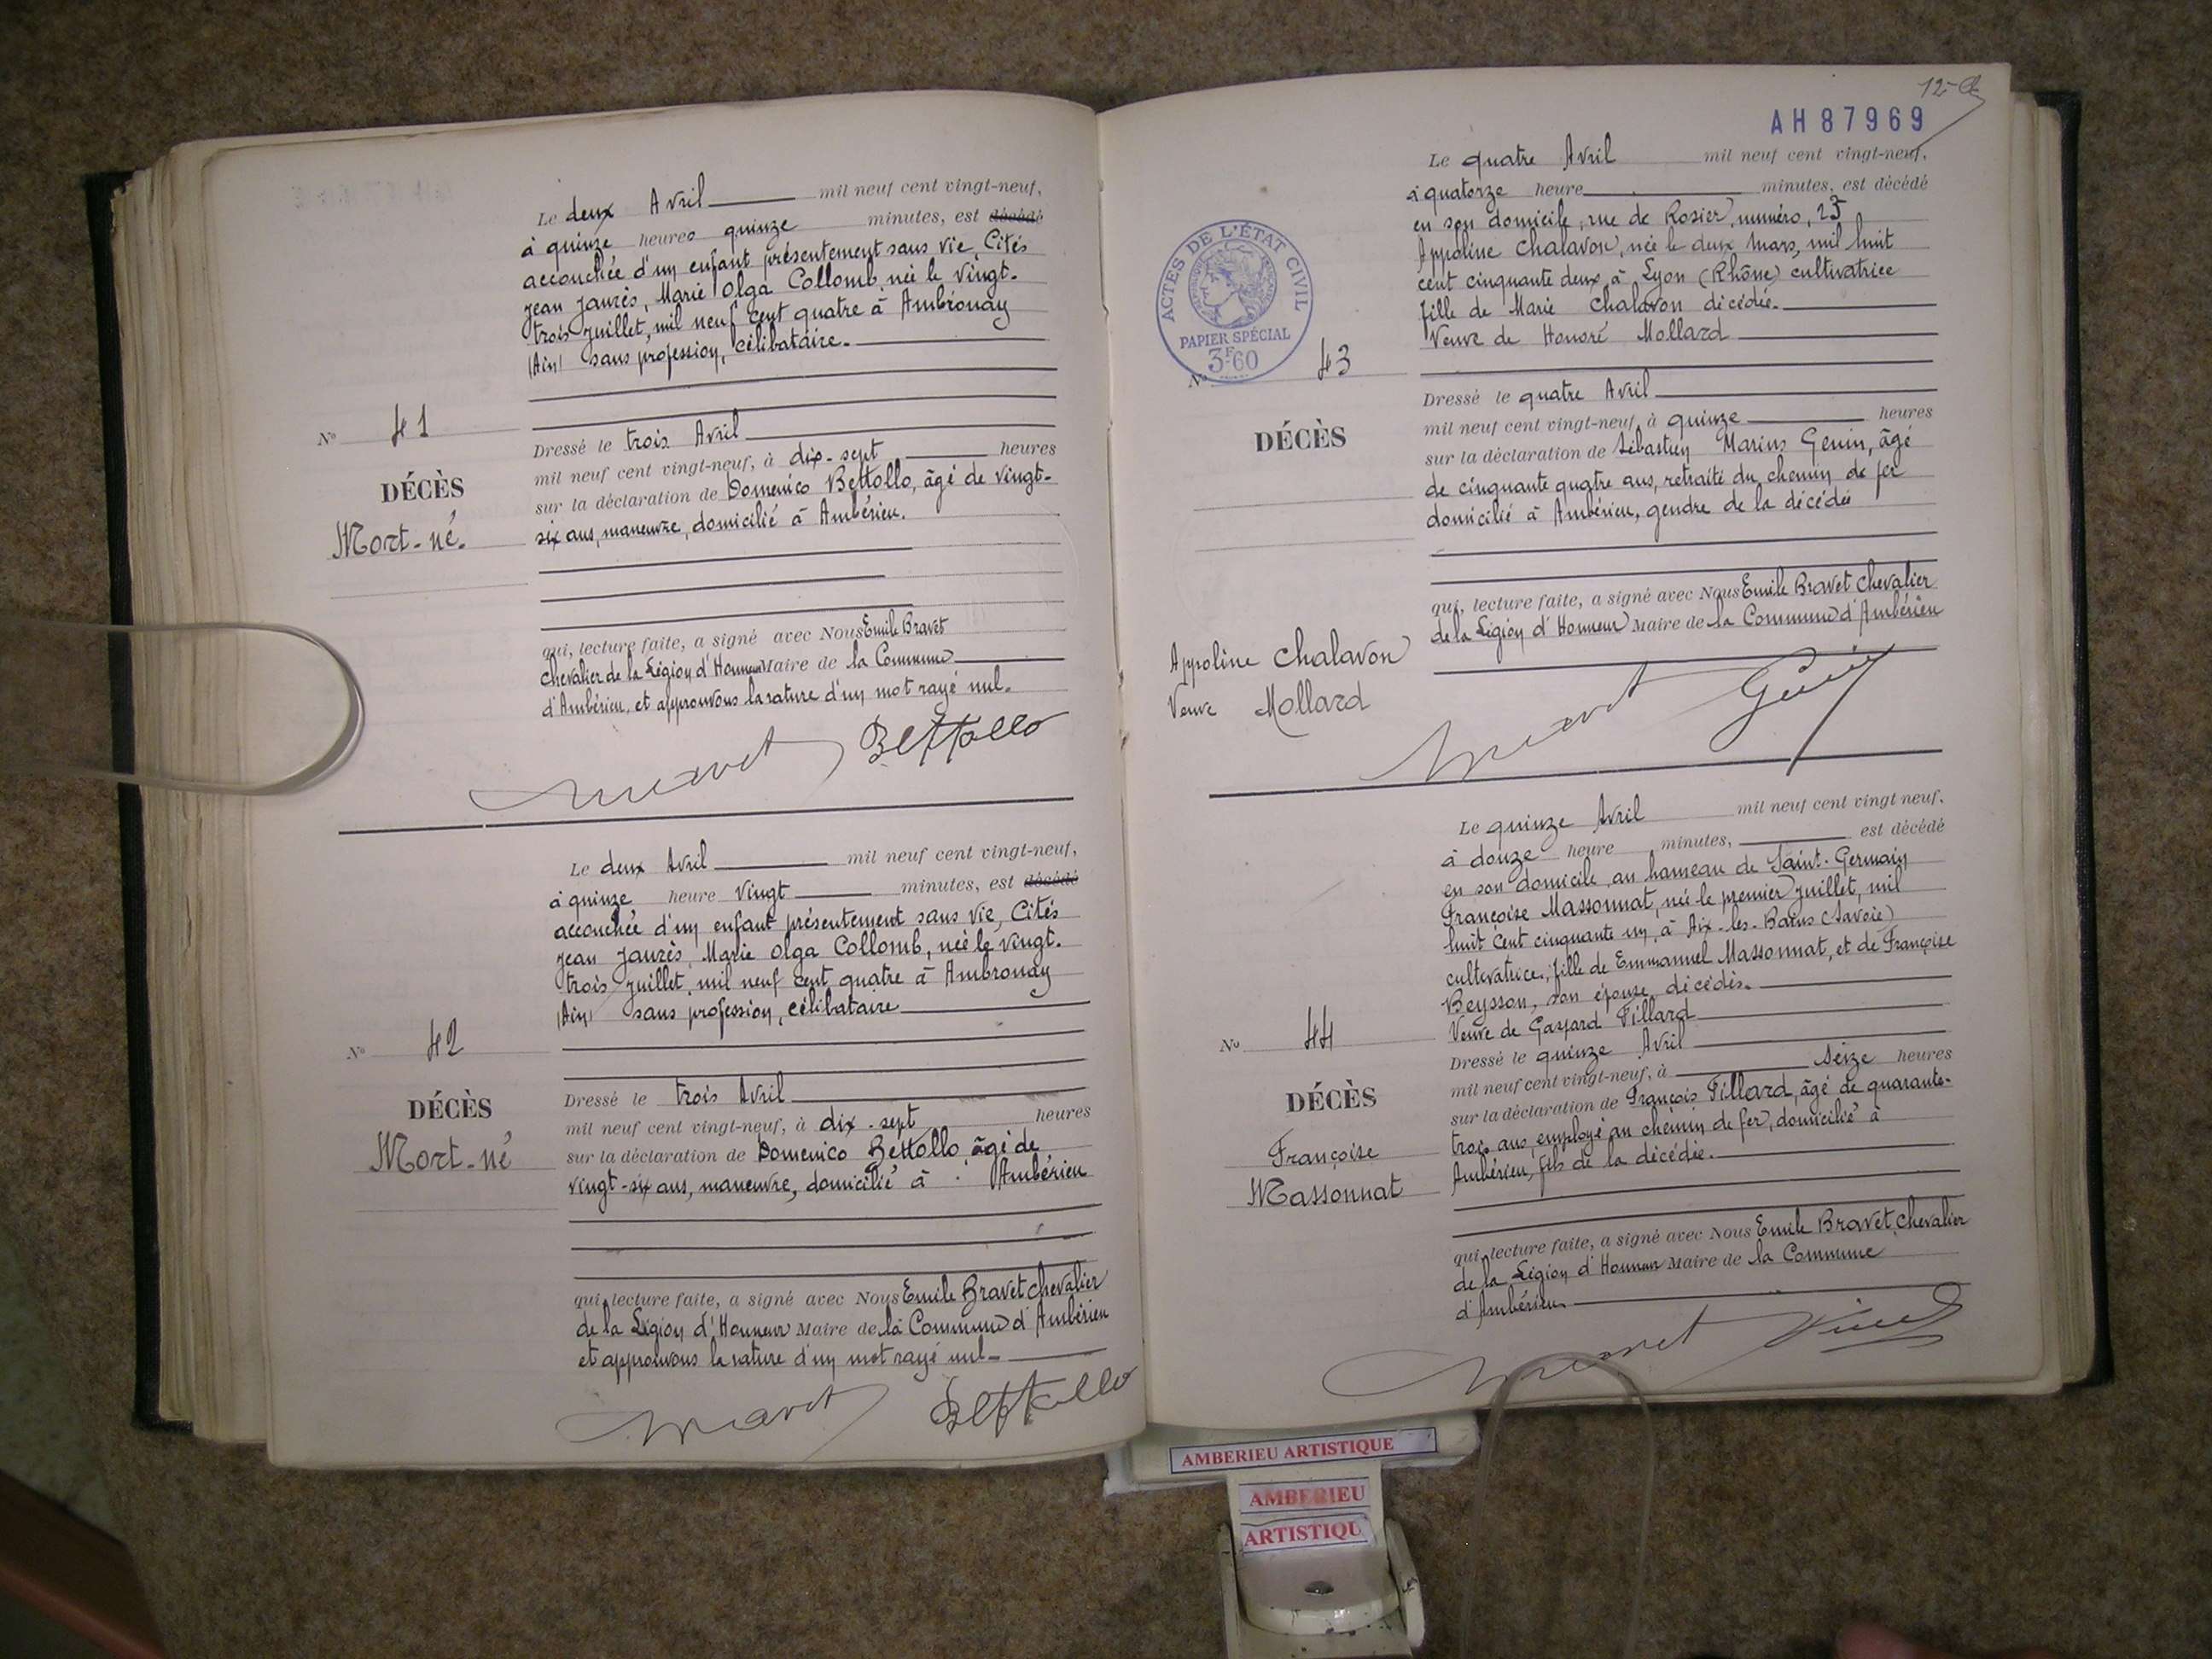 Le deux Avril mil neuf cent vingt-neuf,
à quinze heures quinze minutes, est décédé
accouchée d'un enfant présentement sans vie, Cités
Jean Jaurès, Marie Olga Collomb, née le vingt-
trois juillet, mil neuf cent quatre à Ambronay
(Ain) sans profession, célibataire.
No 41
DÉCÈS
Mort-né.
Dressé le trois Avril
mil neuf cent vingt-neuf, à dix-sept heures
sur la déclaration de Domenico Bettollo, âgé de vingt-
six ans, manœuvre, domicilié à Ambérieu.
qui, lecture faite, a signé avec Nous Emile Bravet
Chevalier de la Légion d'Honneur Maire de la Commune
d'Ambérieu, et approuvons la rature d'un mot rayé nul.
Bravet Bettollo
Le deux Avril mil neuf cent vingt-neuf,
à quinze heure vingt minutes, est décédé
accouchée d'un enfant présentement sans vie, Cités
Jean Jaurès, Marie Olga Collomb, née le vingt-
trois juillet, mil neuf cent quatre à Ambronay
(Ain) sans profession, célibataire
No 42
DÉCÈS
Mort-né
Dressé le trois Avril
mil neuf cent vingt-neuf, à dix-sept heures
sur la déclaration de Domenico Bettollo, âgé de
vingt-six ans, manœuvre, domicilié à Ambérieu
qui, lecture faite, a signé avec Nous Emile Bravet Chevalier
de la Légion d'Honneur Maire de la Commune d'Ambérieu
et approuvons la rature d'un mot rayé nul
Bravet Bettollo
AH87969
Le quatre Avril mil neuf cent vingt-neuf,
à quatorze heure minutes, est décédé
en son domicile, rue de Rosier, numéro,
Appoline Chalavon, née le deux Mars, mil huit
cent cinquante deux à Lyon (Rhône) cultivatrice
fille de Marie Chalavon décédée.
Veuve de Honoré Mollard
ACTES DE L'ÉTAT CIVIL
PAPIER SPÉCIAL
3F60
No 43
DÉCÈS
Dressé le quatre Avril
mil neuf cent vingt-neuf, à quinze heures
sur la déclaration de Sébastien Marius Genin, âgé
de cinquante quatre ans, retraité du chemin de fer
domicilié à Ambérieu, gendre de la décédée
qui, lecture faite, a signé avec Nous Emile Bravet Chevalier
de la Légion d'Honneur Maire de la Commune d'Ambérieu
Appoline Chalavon
Veuve Mollard
Bravet Genin
Le quinze Avril mil neuf cent vingt-neuf,
à douze heure minutes, est décédé
en son domicile au hameau de Saint-Germain
Françoise Massonnat, née le premier juillet, mil
huit cent cinquante un, à Aix-les-Bains (Savoie)
cultivatrice, fille de Emmanuel Massonnat, et de Françoise
Beysson, son épouse, décédés.
Veuve de Gaspard Tillard
No 44
DÉCÈS
Françoise
Massonnat
Dressé le quinze Avril
mil neuf cent vingt-neuf, à Seize heures
sur la déclaration de François Tillard, âgé de quarante-
trois ans, employé au chemin de fer, domicilié à
Ambérieu, fils de la décédée.
qui, lecture faite, a signé avec Nous Emile Bravet, Chevalier
de la Légion d'Honneur Maire de la Commune
d'Ambérieu
Bravet
AMBERIEU ARTISTIQUE
AMBERIEU
ARTISTIQU